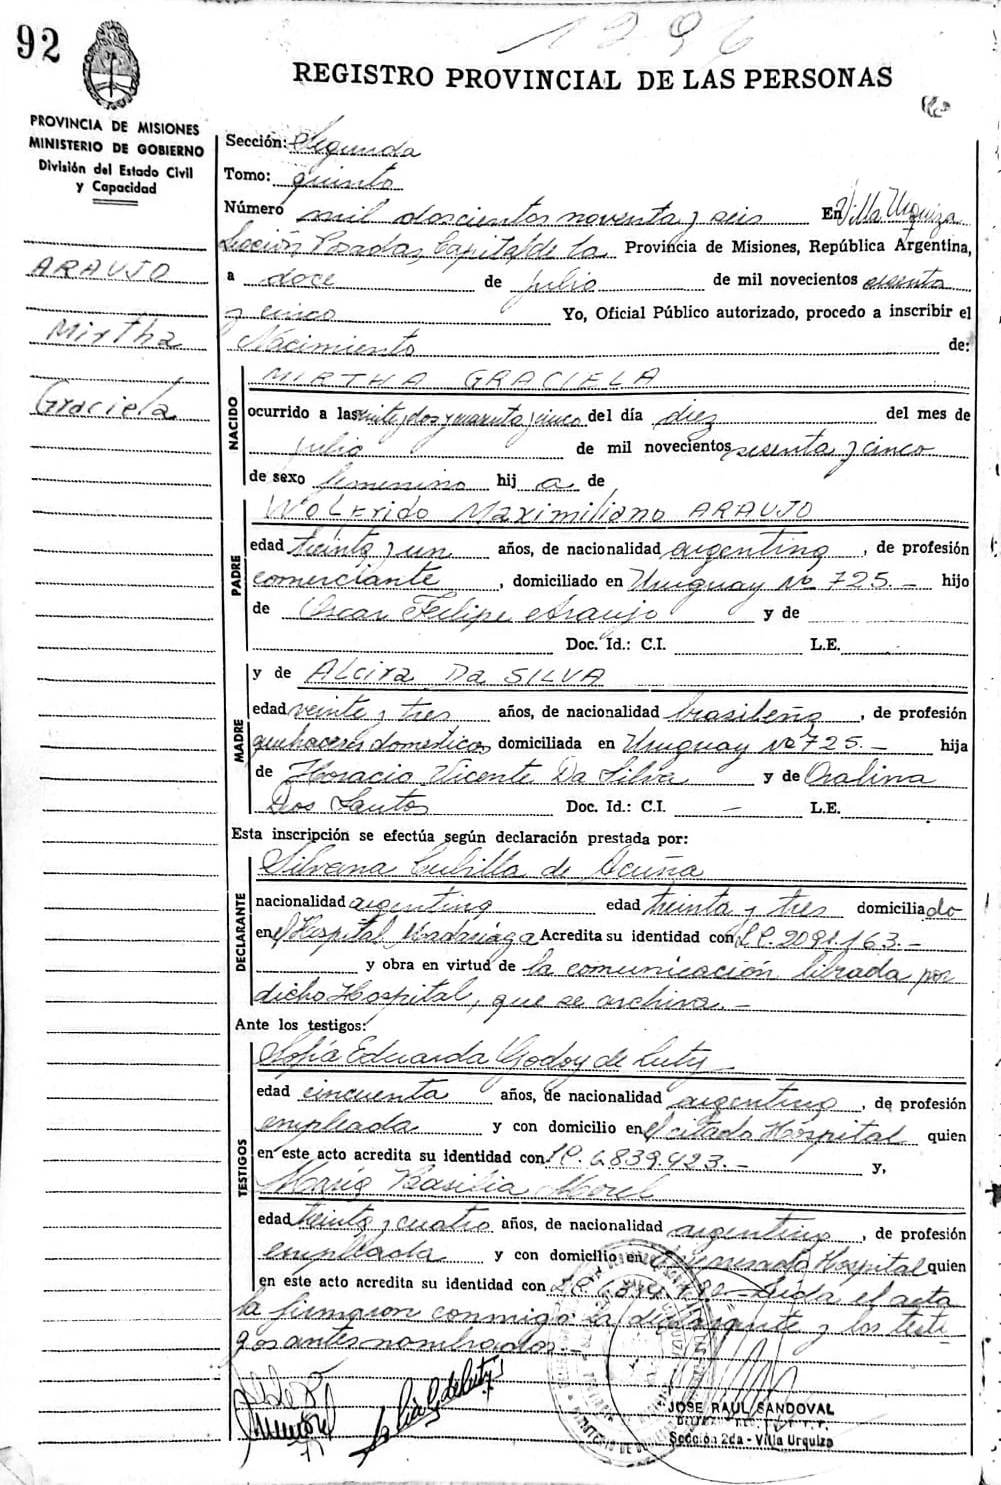 92
1296
REGISTRO PROVINCIAL DE LAS PERSONAS
PROVINCIA DE MISIONES
MINISTERIO DE GOBIERNO
División del Estado Civil
y Capacidad
ARAUJO
Mirtha
Graciela
Sección: Segunda
Tomo: quinto
Número mil doscientos noventa y seis En Villa Urquiza
Sección, Posadas, Capital de la Provincia de Misiones, República Argentina,
a doce de julio de mil novecientos sesenta
y cinco Yo, Oficial Público autorizado, procedo a inscribir el
Nacimiento de:
NACIDO
MIRTHA GRACIELA
ocurrido a las veinte y dos y cuarenta y cinco del día diez del mes de
julio de mil novecientos sesenta y cinco
de sexo femenino hij a de
PADRE
Wolfrido Maximiliano ARAUJO
edad treinta y un años, de nacionalidad argentina, de profesión
comerciante, domiciliado en Uruguay No 725.- hijo
de Oscar Felipe Araujo y de
Doc. Id.: C.I. L.E.
MADRE
y de Alcira Da SILVA
edad veinte y tres años, de nacionalidad brasileña, de profesión
quehaceres domesticos domiciliada en Uruguay No 725.- hija
de Horacio Vicente Da Silva y de Oralina
Dos Santos Doc. Id.: C.I. - L.E.
Esta inscripción se efectúa según declaración prestada por:
DECLARANTE
Silvana Cubilla de Acuña
nacionalidad argentina edad treinta y tres domiciliado
en el Hospital Madariaga Acredita su identidad con L.C. 2091.163.-
y obra en virtud de la comunicación librada por
dicho Hospital, que se archiva.-
Ante los testigos:
TESTIGOS
Sofía Eduarda Godoy de Luty
edad cincuenta años, de nacionalidad argentina, de profesión
empleada y con domicilio en el citado Hospital quien
en este acto acredita su identidad con L.C. 6839423.- y,
María Basilia Morel
edad treinta y cuatro años, de nacionalidad argentina, de profesión
empleada y con domicilio en Hospital quien
en este acto acredita su identidad con Leida el acta
la firmaron conmigo la declarante y los testi
gos antes nombrados.-
JOSE RAUL SANDOVAL
Sección 2da - Villa Urquiza